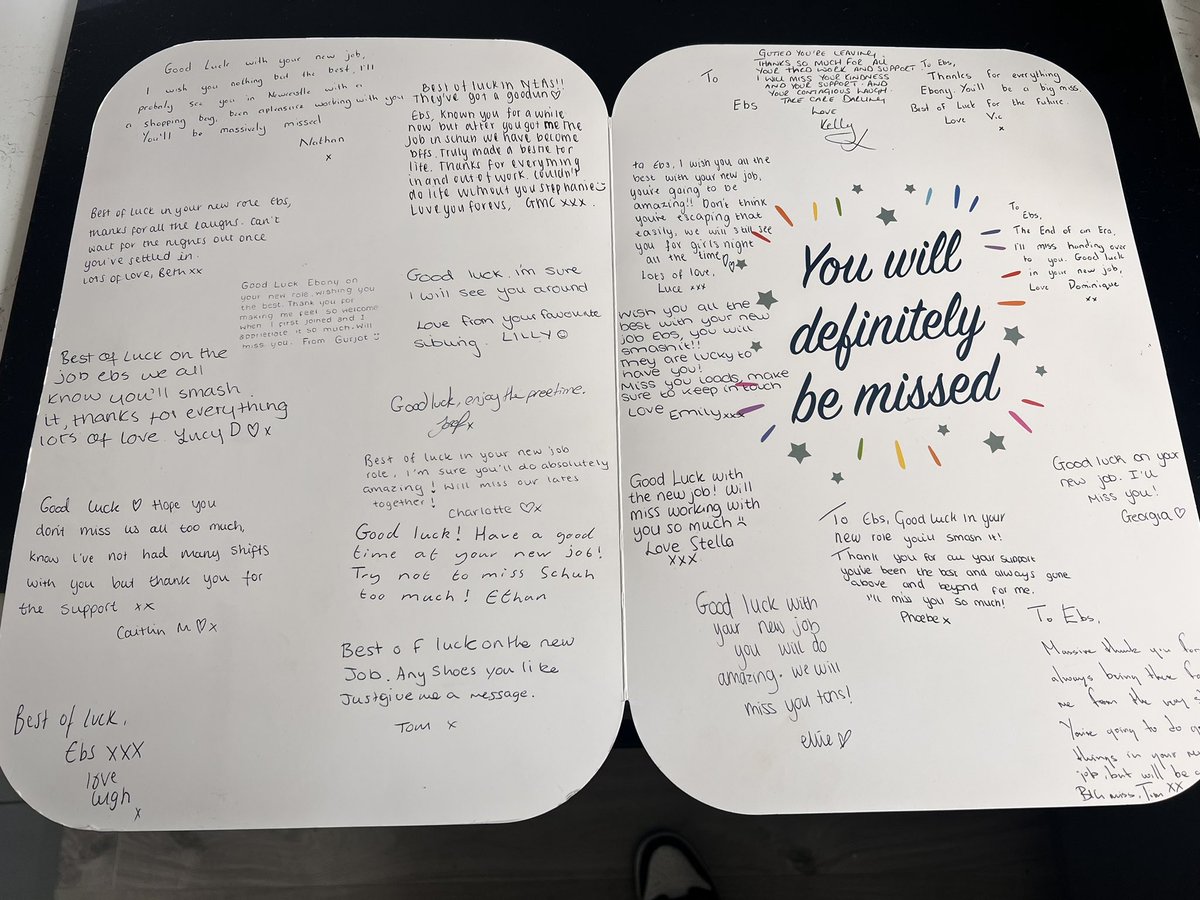 Good Luck with your new job,
I wish you nothing but the best, I'll
probaly see you in Newcastle with a
a shopping bag, been a pleasure working with you
You'll be massively missed
Nathan
x
Best of luck in NTAS!!
They've got a goodun♡
Ebs, known you for a while
now but after you got me the
job in schuh we have become
bffs. Truly made a bestie for
life. Thanks for everything
in and out of work. Couldn't
do life without you Stephanie☺
Love you forevs, GMC xxx.
Best of luck in your new role Ebs,
thanks for all the laughs. Can't
wait for the nights out once
you've settled in.
Lots of Love, Beth xx
Good Luck Ebony on
your new role. Wishing you
the best. Thank you for
making me feel so welcome
when I first joined and I
appreciate it so much. Will
miss you. From Gurjot ☺
Good luck. i'm sure
I will see you around
Love from your favourite
subling. LILLY ☺
Best of Luck on the
job ebs we all
know you'll smash
it, thanks for everything
lots of love. Lucy D ♡x
Goodluck, enjoy the freetime.
x
Best of luck in your new job
role, I'm sure you'll do absolutely
amazing! Will miss our lates
together!
Charlotte ♡x
Good luck ♡ Hope you
don't miss us all too much,
know I've not had many shifts
with you but thank you for
the support xx
Caitlin M ♡x
Good luck! Have a good
time at your new job!
Try not to miss Schuh
too much! Ethan
Best of luck on the new
Job. Any Shoes you like
Just give me a message.
Tom x
Best of luck,
Ebs XXX
love
Leigh
x
To
Ebs
GUTTED YOU'RE LEAVING.
THANKS SO MUCH FOR ALL
YOUR HARD WORK AND SUPPORT.
I WILL MISS YOUR KINDNESS
AND YOUR SUPPORT AND
YOUR CONTAGIOUS LAUGH.
TAKE CARE DARLING
Love
Kelly
To Ebs,
Thanks for everything
Ebony. You'll be a big miss.
Best of Luck For the Future.
Love Vic
x
to Ebs, I wish you all the
best with your new job,
you're going to be
amazing!! Don't think
you're escaping that
easily, we will still see
you for girls night
all the time♡
Lots of love,
Luce xxx
To
Ebs,
The End of an Era,
I'll miss handing over
to you. Good luck
in your new job,
Love Dominique
xx
You will
definitely
be missed
Wish you all the
best with your new
job Ebs, you will
smash it!!
They are lucky to
have you!
Miss you loads, make
sure to keep in touch
Love Emily xxx
Good Luck with
the new job! Will
miss working with
you so much ☹
Love Stella
XXX
Good luck on your
new job. I'll
miss you!
Georgia ♡
To Ebs, Good luck in your
new role you'll smash it!
Thank you for all your support
you've been the best and always gone
above and beyond for me.
I'll miss you so much!
Phoebe x
Good luck with
your new job
you will do
amazing. we will
miss you tons!
ellie ♡
To Ebs,
Massive thank you for
always being there
me from the way
You're going to do
things in your
job, but will be
BIG miss, Tim XX